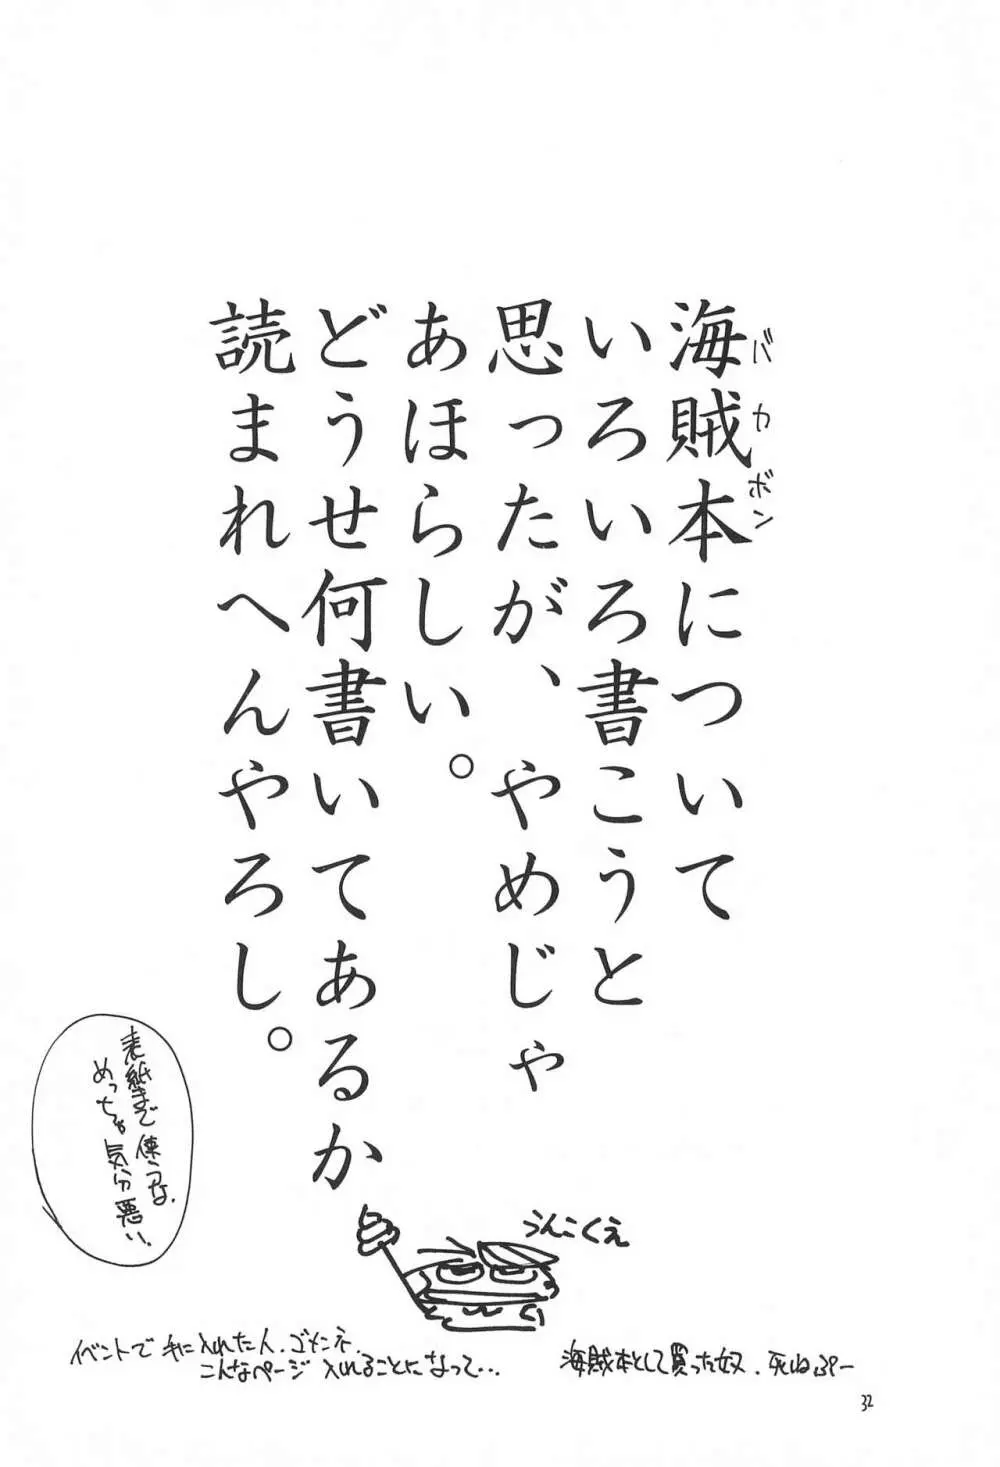 海賊本について
バカボン
いろいろ書こうと
思ったが、やめじゃ
あほらしい。
どうせ何書いてあるか
読まれへんやろし。
表紙まで使うな、
めっちゃ気分悪い、
うんこくえ
イベントで手に入れた人、ゴメンネ、
こんなページ入れることになって…
海賊本として買った奴、死ねぷー
32